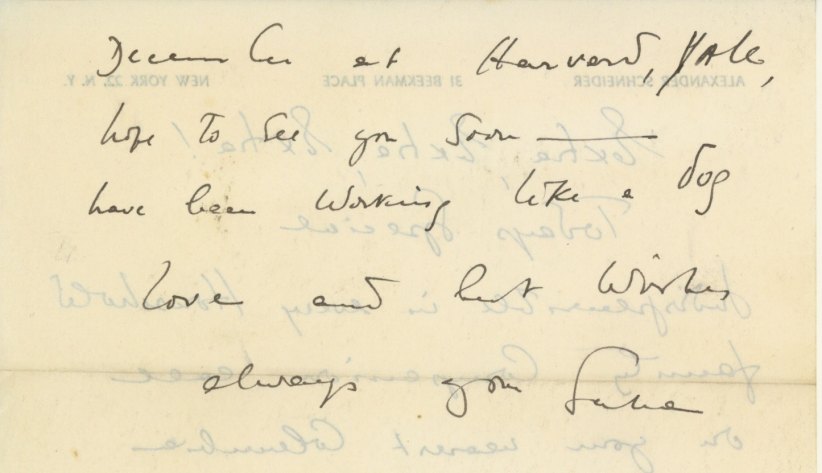 December at Harvard, Yale,
hope to see you soon —
have been working like a dog
love and best wishes
always your Sasha